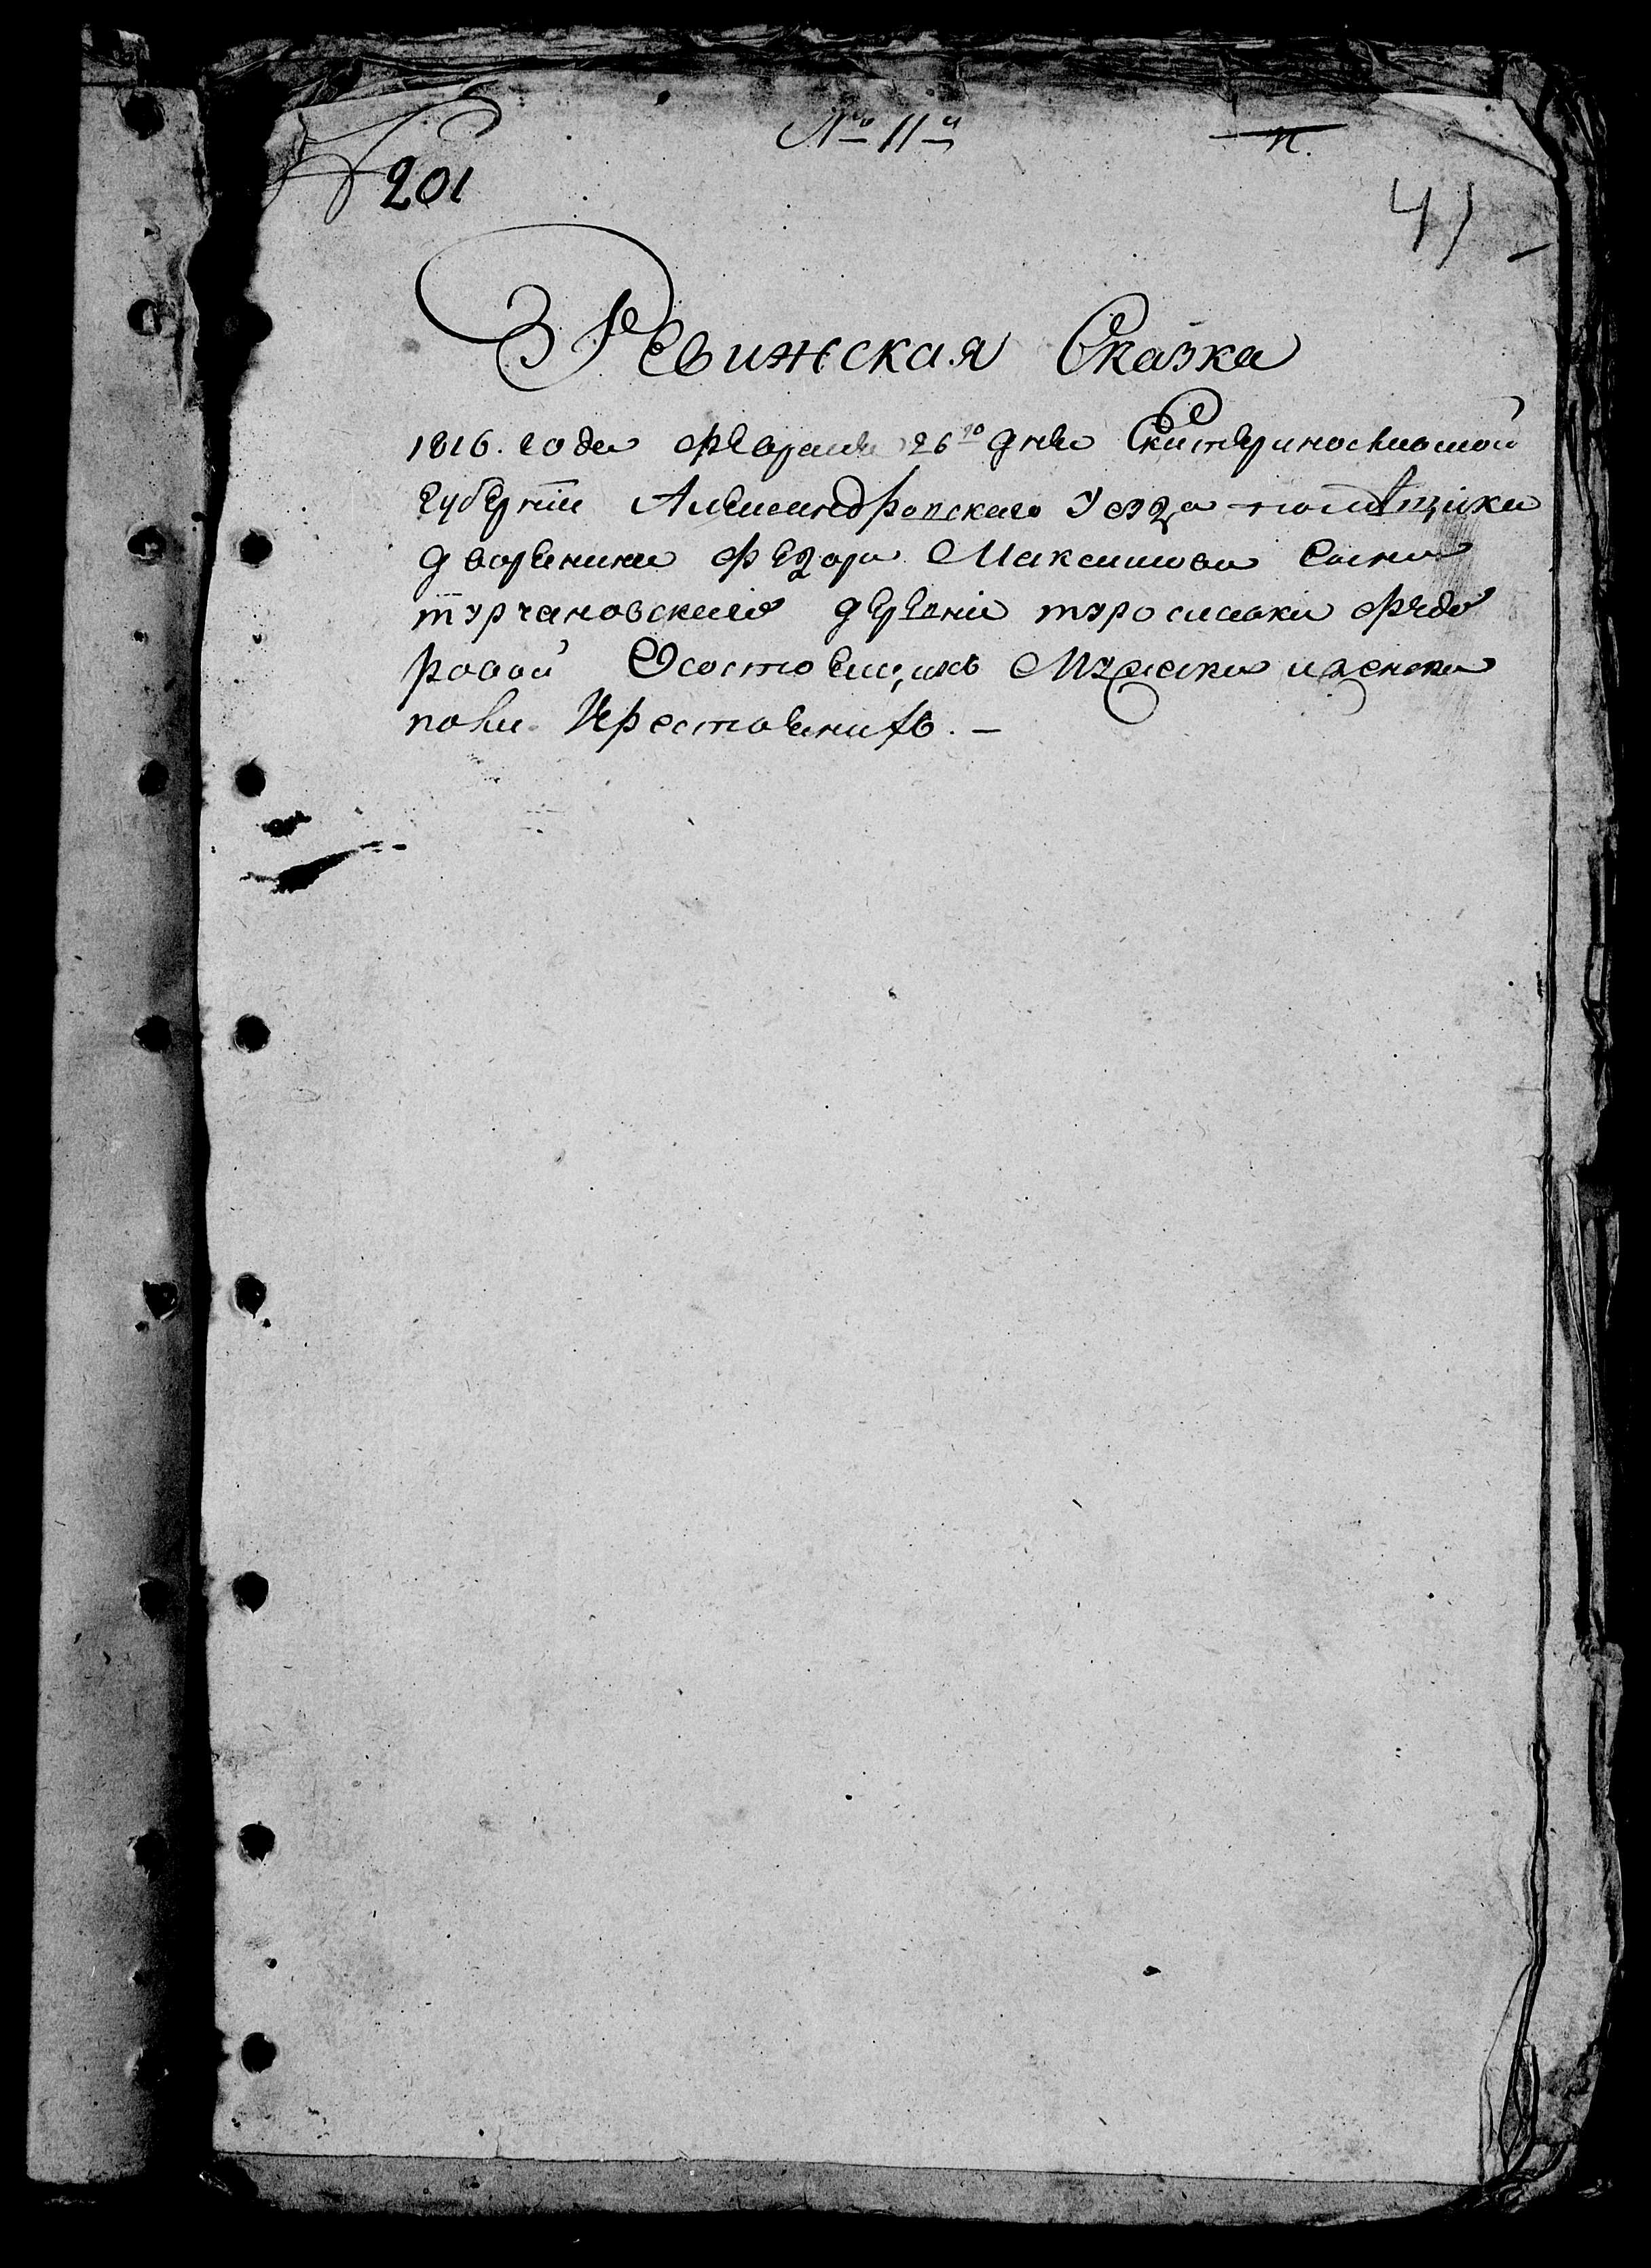 № 11й
201
41
Ревижская Сказка
1816. года февраля 26го дня Екатеринослаской
губернiи Александровскаго Уезда помѣщика
дворенина Федора Максимова сына
турчановскаго деревни туросиловки Федо
ровой Осостоещихъ Мужеска иженска
пола Крестоянихъ. —